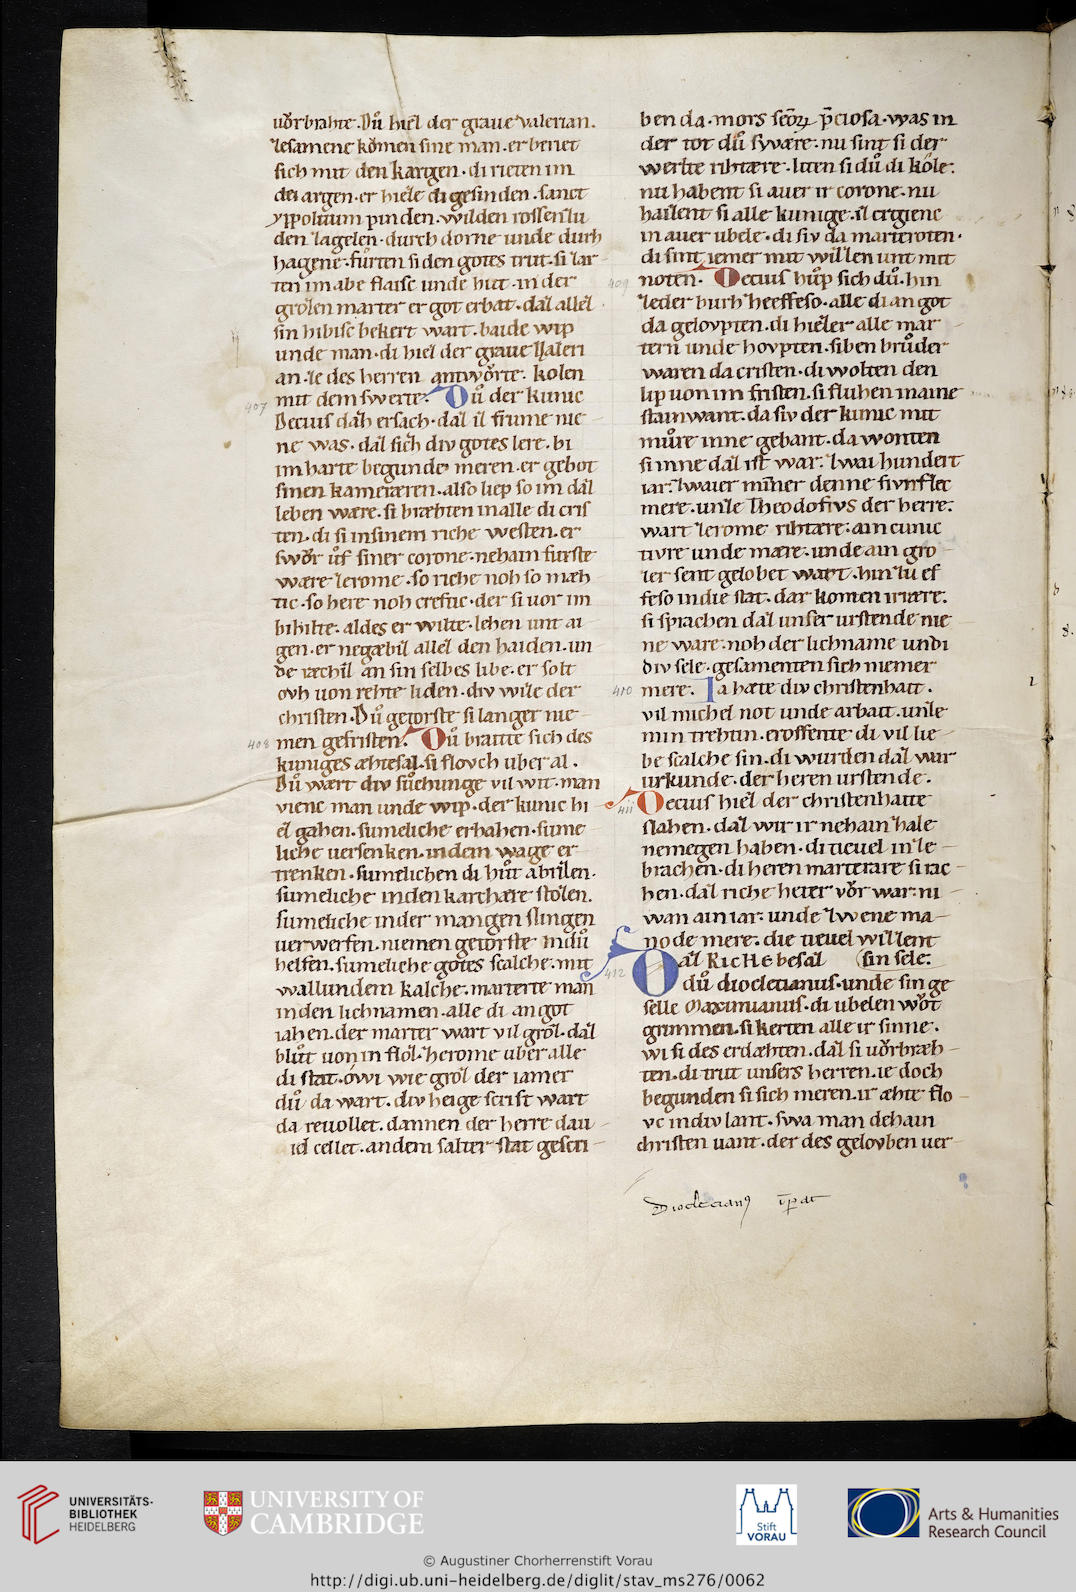 uͦrbrahte. Duͦ hiez der graue valerian.
zesamene komen sine man. er beriet
sich mit den kargen. di rieten im
dei argen. er hieze di gesinden. sanct
yppolitum pinden. wilden rossen zu
den zagelen. durch dorne unde durh
hagene. fuͦrten si den gotes trut. si zar
ten im abe flaisc unde hut. in der
grozen marter er got erbat. daz allez
sin hibisc bekert wart. baide wip
unde man. di hiez der graue Valeri
an. ze des herren antwoͤrte. kolen
407 mit dem swerte. Duͦ der kunic
Decius dah ersach. daz iz frume nie
ne was. daz sich div gotes lere. bi
im harte begunde meren. er gebot
sinen kameræren. also liep so im daz
leben wære. si bræhten in alle di cris
ten. di si in sinem riche westen. er
swoͦr uͦf siner corone. nehain furste
wære ze rome. so riche noh so mæh
tic. so here noh creftic. der si vor im
bihilte. al des er wilte. lehen unt ai
gen. er negæbiz allez den haiden. un
de ræchiz an sin selbes libe. er solt
ovh uon rehte liden. div wile der
christen. Duͦ getorste si langer nie
408 men gefristen. Duͦ braitte sich des
kuniges æhtesal. si flovch uber al.
Duͦ wart div suͦchunge vil wit. man
vienc man unde wip. der kunic hi
ez gahen. sumeliche erhahen. sume
liche uersenken. in dem wage er
trenken. sumelichen di huͦt abrizen.
sumeliche in den karchære stozen.
sumeliche in der mangen slingen
uerwerfen. niemen getorste in duͦ
helfen. sumeliche gotes scalche. mit
wallundem kalche. marterte man
in den lichnamen. alle di an got
iahen. der marter wart vil groz. daz
bluͦt uon in floz. ze rome uber alle
di stat. ówi wie groz der iamer
duͦ da wart. div heige scrift wart
da reuollet. dannen der herre dau
id cellet. an dem salter stat gescri
ben da. mors scōꝝ p̄ciosa. was in
der tot duͦ swære. nu sint si der
werlte rihtære. liten si duͦ di kole.
nu habent si auer ir corone. nu
hailent si alle kunige. iz ergienc
in auer ubele. di siv da marteroten.
di sint iemer mit willen unt mit
409 noten. Decius huͦp sich duͦ. hin
ze der burh ze effeso. alle di an got
da gelovpten. di hiez er alle mar
tern unde hovpten. siben bruͦder
waren da cristen. di wolten den
lip uon im fristen. si fluhen in aine
stainwant. da siv der kunic mit
muͦre inne gebant. da wonten
si inne daz ist war. zwai hundert
iar. zwaier miner denne fivnfzec
mere. unze Theodosivs der herre.
wart ze rome rihtære. ain cunic
tivre unde mære. unde ain gro
zer sent gelobet wart. hin zu ef
feso in die stat. dar komen irrære.
si sprachen daz unser urstende nie
ne ware. noh der lichname undi
div sele. gesamenten sich niemer
410 mere. Ia hæte div christenhait.
vil michel not unde arbait. unze
min trehtin. eroffente di vil lie
be scalche sin. di wurden daz war
urkunde. der heren urstende.
411 Decius hiez der christenhaite
slahen. daz wir ir nehain zale
nemegen haben. di tieuel in ze
brachen. di heren marterare si rac
hen. daz riche heter voͤr war. ni
wan ain iar. unde zwene ma
node mere. die tieuel wizzent
412 Daz RicHe besaz (sin sele.
duͦ diocletianus. unde sin ge
selle Maximianus. di ubelen woͤt
grimmen. si kerten alle ir sinne.
wi si des erdæhten. daz si uoͤrbræh
ten. di trut unsers herren. ie doch
begunden si sich meren. ir æhte flo
vc in div lant. swa man dehain
christen vant. der des gelovben uer
Dioclecianꝰ ip̄at
UNIVERSITÄTS-
BIBLIOTHEK
HEIDELBERG
UNIVERSITY OF
CAMBRIDGE
Stift
VORAU
Arts & Humanities
Research Council
© Augustiner Chorherrenstift Vorau
http://digi.ub.uni-heidelberg.de/diglit/stav_ms276/0062